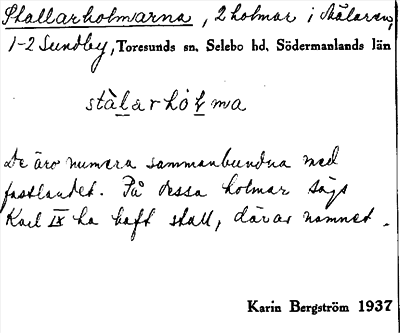 Stallarholmarna, 2 holmar i Mälaren,
1-2 Sundby, Toresunds sn, Selebo hd, Södermanlands län
stàlarhòlma
De äro numera sammanbundna med
fastlandet. På dessa holmar sägs
Karl IX ha haft stall, därav namnet.
Karin Bergström 1937